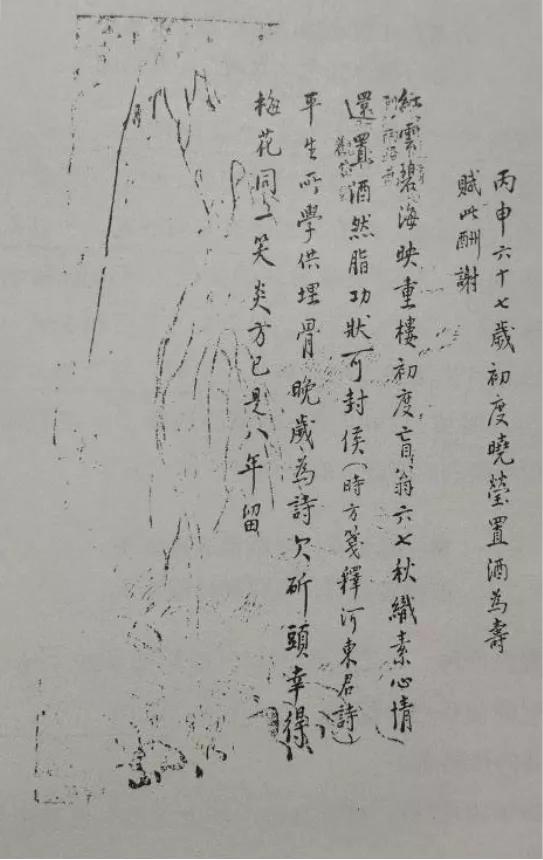 丙申六十七歲初度曉瑩置酒為壽
賦此酬謝
紅雲碧海映重樓初度盲翁六七秋織素心情
還置酒然脂功狀可封侯（時方箋釋河東君詩）
平生所學供埋骨晚歲為詩欠斫頭幸得
梅花同一笑炎方已是八年留